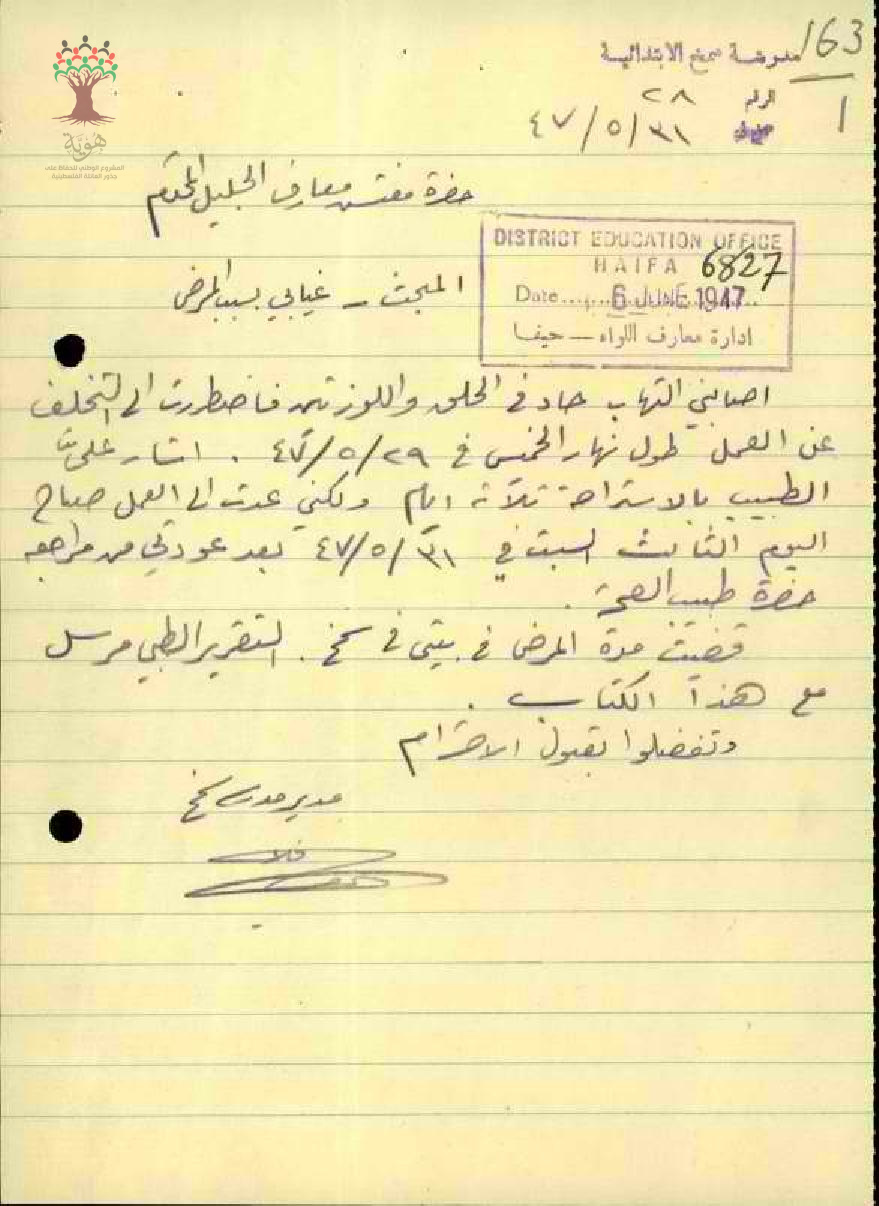 163
1
مدرسة سمخ الابتدائية
الرقم ٢٨
٤٧/٥/٣١
هَوِيَّة
المشروع الوطني للحفاظ على
جذور العائلة الفلسطينية
حضرة مفتش معارف الجليل المحترم
DISTRICT EDUCATION OFFICE
HAIFA 6827
Date 6 JUNE 1947
ادارة معارف اللواء — حيفا
المبحث - غيابي بسبب المرض
اصابني التهاب حاد في الحلق واللوزتين فاضطررت الى التخلف
عن العمل طول نهار الخميس في ٤٧/٥/٢٩ . اشار علي
الطبيب بالاستراحة ثلاثة ايام ولكني عدت الى العمل صباح
اليوم الثالث السبت في ٤٧/٥/٣١ بعد عودتي من مراجعة
حضرة طبيب الصحة .
قضيت مدة المرض في بيتي في سمخ . التقرير الطبي مرسل
مع هذا الكتاب .
وتفضلوا بقبول الاحترام
مدير مدرسة سمخ